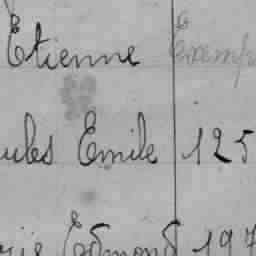 Etienne Exemp
ules Emile 125
rie Edmond 197